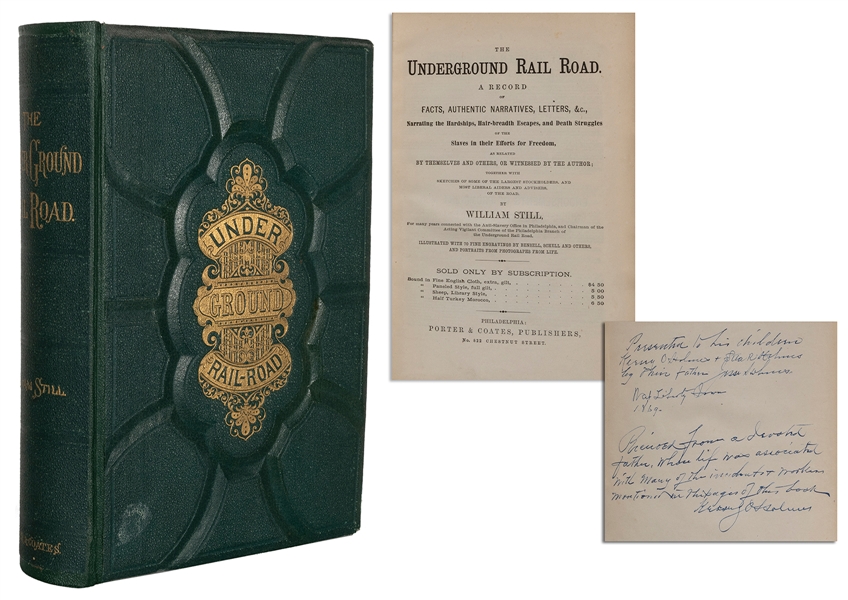 THE
ER GROUND
L ROAD.
STILL.
COATES.
UNDER
GROUND
RAIL-ROAD
THE
UNDERGROUND RAIL ROAD.
A RECORD
OF
FACTS, AUTHENTIC NARRATIVES, LETTERS, &c.,
Narrating the Hardships, Hair-breadth Escapes, and Death Struggles
OF THE
Slaves in their Efforts for Freedom,
AS RELATED
BY THEMSELVES AND OTHERS, OR WITNESSED BY THE AUTHOR;
TOGETHER WITH
SKETCHES OF SOME OF THE LARGEST STOCKHOLDERS, AND
MOST LIBERAL AIDERS AND ADVISERS,
OF THE ROAD.
BY
WILLIAM STILL,
For many years connected with the Anti-Slavery Office in Philadelphia, and Chairman of the
Acting Vigilant Committee of the Philadelphia Branch of
the Underground Rail Road.
ILLUSTRATED WITH 70 FINE ENGRAVINGS BY BENSELL, SCHELL AND OTHERS,
AND PORTRAITS FROM PHOTOGRAPHS FROM LIFE.
SOLD ONLY BY SUBSCRIPTION.
Bound in Fine English Cloth, extra, gilt, $4 50
" Paneled Style, full gilt, 5 00
" Sheep, Library Style, 5 50
" Half Turkey Morocco, 6 50
PHILADELPHIA:
PORTER & COATES, PUBLISHERS,
No. 822 CHESTNUT STREET.
Presented to his children
Holmes
by their father Jesse Holmes.
West Liberty Iowa
from a devoted
father, whose life was associated
with many of the incidents & workers
mentioned in the pages of this book
Holmes